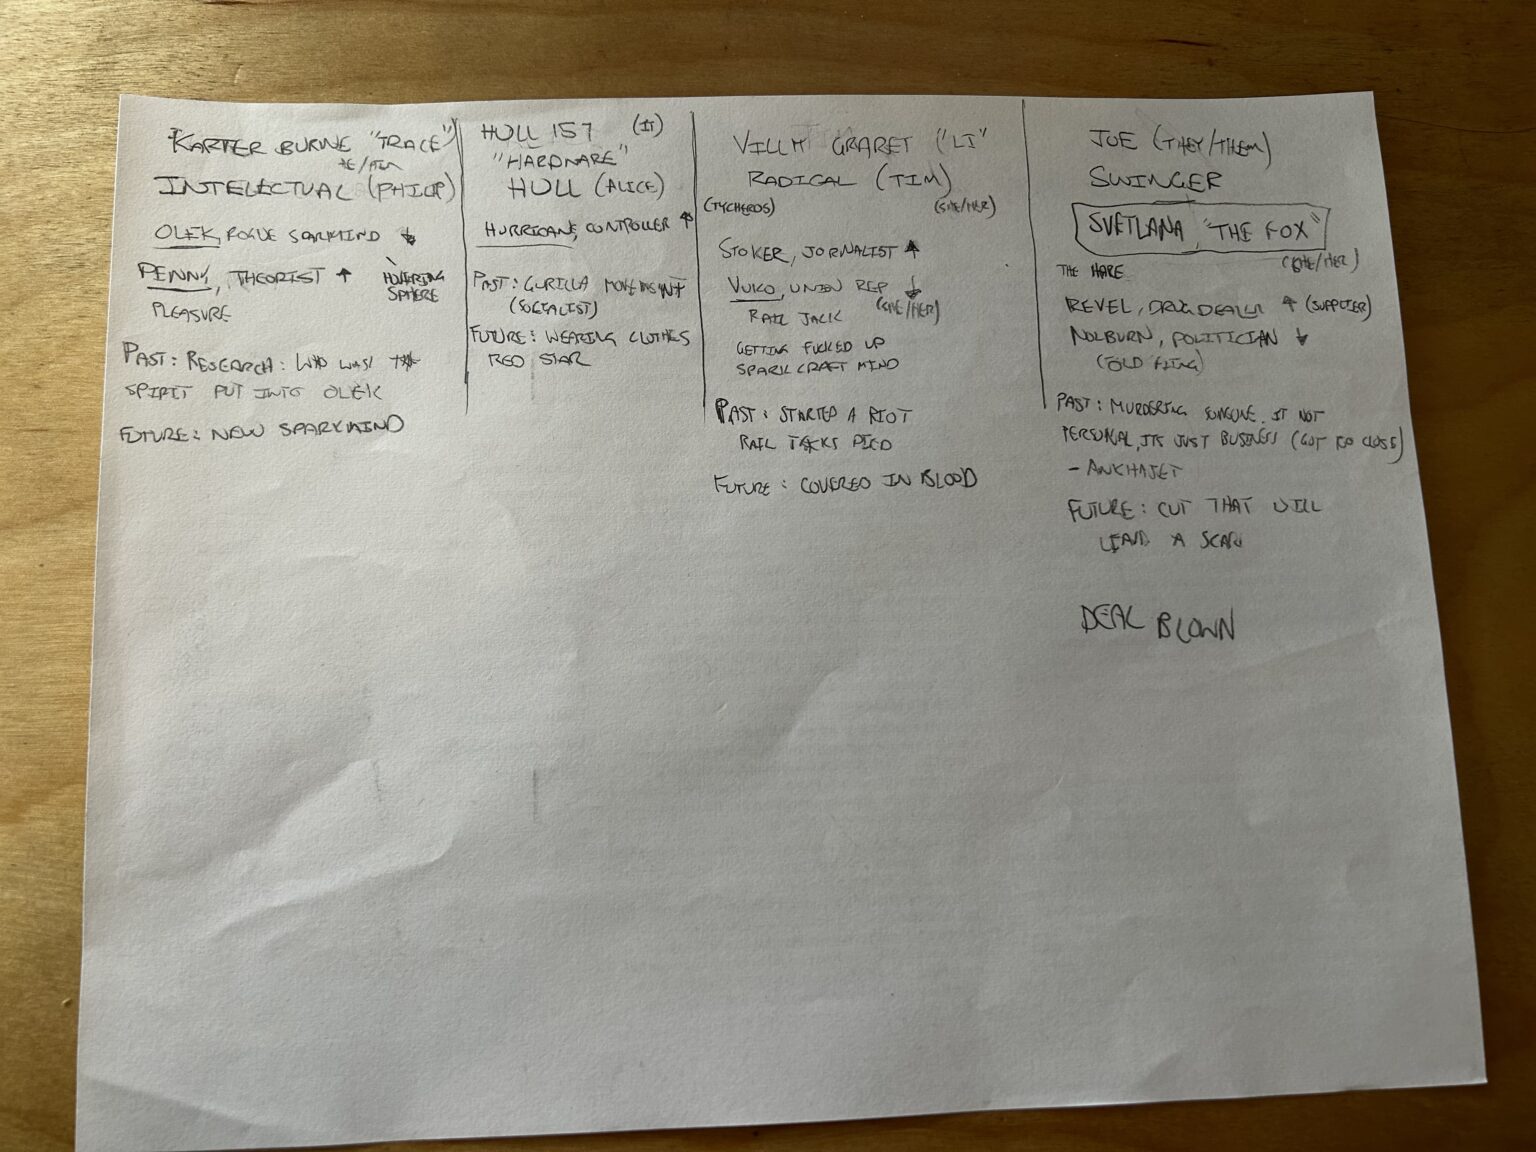 KARTER BURNE "TRACE"
HE/HIM
INTELECTUAL (PHILIP)
OLEK, ROGUE SPARKMIND ↓
PENNY, THEORIST ↑
HOVERING
SPHERE
PLEASURE
PAST: RESEARCH: WHO WAS THE
SPIRIT PUT INTO OLEK
FUTURE: NEW SPARKMIND
HULL 157 (IT)
"HARDWARE"
HULL (ALICE)
HURRICANE, CONTROLLER ↑
PAST: GURILLA MOVEMENT
(SOCIALIST)
FUTURE: WEARING CLOTHES
RED STAR
VILLM GRARET ("LI")
RADICAL (TIM)
(TYCHEROS) (SHE/HER)
STOKER, JORNALIST ↑
VUKO, UNION REP ↓
RAIL JACK (SHE/HER)
GETTING FUCKED UP
SPARK CRAFT MIND
PAST: STARTED A RIOT
RAIL PICD
FUTURE: COVERED IN BLOOD
JOE (THEY/THEM)
SWINGER
SVETLANA "THE FOX"
(SHE/HER)
THE HARE
REVEL, DRUG DEALER ↑ (SUPPLIER)
NOLBURN, POLITICIAN ↓
(OLD FLING)
PAST: MURDERING SOMEONE, IT NOT
PERSONAL, ITS JUST BUSINESS (GOT TOO CLOSE)
- ANKHAJET
FUTURE: CUT THAT WILL
LEAVE A SCAR
DEAL BLOWN